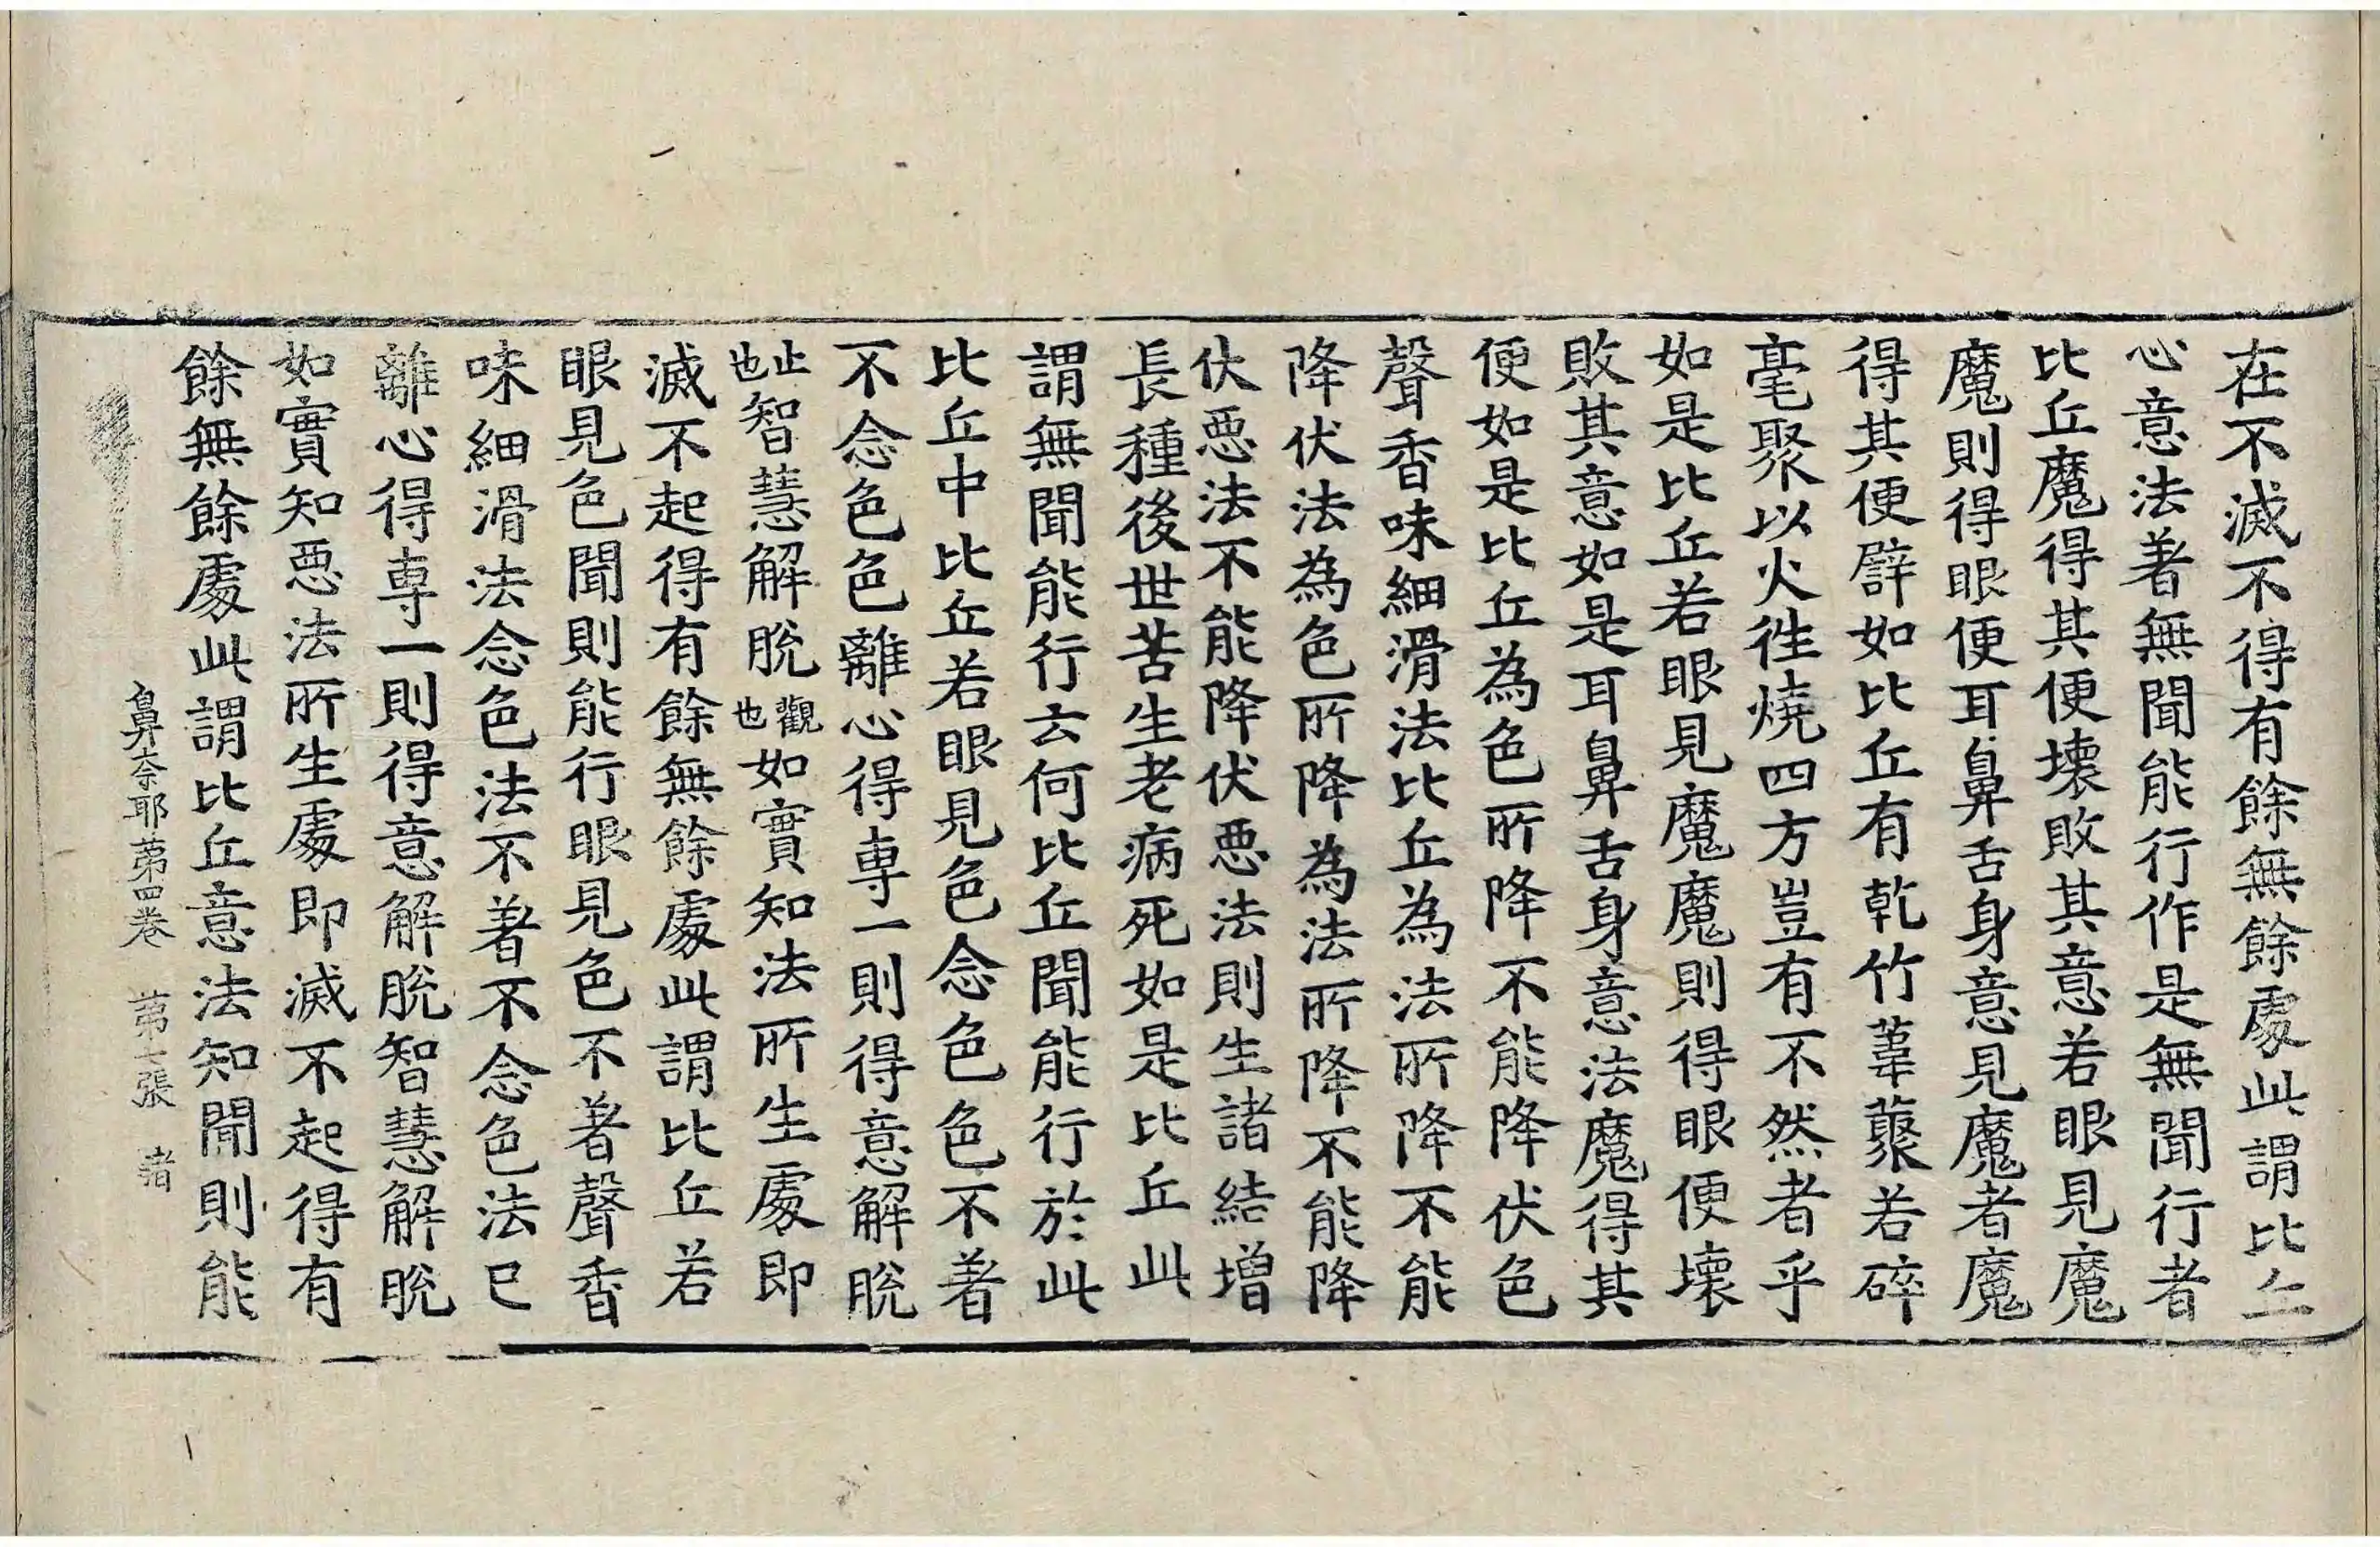 在不滅不得有餘無餘處此謂比丘
心意法著無聞能行作是無聞行者
比丘魔得其便壞敗其意若眼見魔
魔則得眼便耳鼻舌身意見魔者魔
得其便譬如比丘有乾竹葦藂若碎
毫聚以火徃燒四方豈有不然者乎
如是比丘若眼見魔魔則得眼便壞
敗其意如是耳鼻舌身意法魔得其
便如是比丘為色所降不能降伏色
聲香味細滑法比丘為法所降不能
降伏法為色所降為法所降不能降
伏惡法不能降伏惡法則生諸結增
長種後世苦生老病死如是比丘此
謂無聞能行云何比丘聞能行於此
比丘中比丘若眼見色念色色不著
不念色色離心得専一則得意解脫
止也智慧解脫觀也如實知法所生處即
滅不起得有餘無餘處此謂比丘若
眼見色聞則能行眼見色不著聲香
味細滑法念色法不著不念色法已
離心得専一則得意解脫智慧解脫
如實知惡法所生處即滅不起得有
餘無餘處此謂比丘意法知聞則能
鼻奈耶苐四卷 苐七張 者